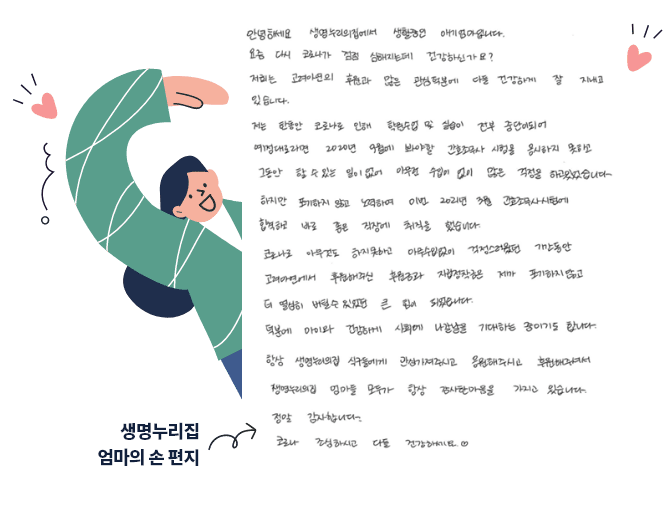 안녕하세요 생명누리의집에서 생활중인 애기엄마입니다.
요즘 다시 코로나가 점점 심해지는데 건강하신가요?
저희는 고려아연의 후원과 많은 관심덕분에 다들 건강하게 잘 지내고
있습니다.
저는 한동안 코로나로 인해 학원수업 및 실습이 전부 중단이되어
예정대로라면 2020년 9월에 봐야할 간호조무사 시험을 응시하지 못하고
그동안 할 수 있는 일이 없어 아무런 수입이 없이 많은 걱정을 하고있었습니다
하지만 포기하지 않고 노력하여 이번 2021년 3월 간호조무사시험에
합격하고 바로 좋은 직장에 취직을 했습니다.
코로나로 아무것도 하지못하고 아무수입없이 걱정스러웠던 기간동안
고려아연에서 후원해주신 후원금과 자립정착금은 제가 포기하지않고
더 열심히 버틸수있었던 큰 힘이 되었습니다.
덕분에 아이와 건강하게 사회에 나갈날을 기대하는 중이기도 합니다.
항상 생명누리의집 식구들에게 관심가져주시고 응원해주시고 후원해주셔서
생명누리의집 엄마들 모두가 항상 감사한마음을 가지고 있습니다.
정말 감사합니다.
코로나 조심하시고 다들 건강하세요 ♡
생명누리집
엄마의 손 편지